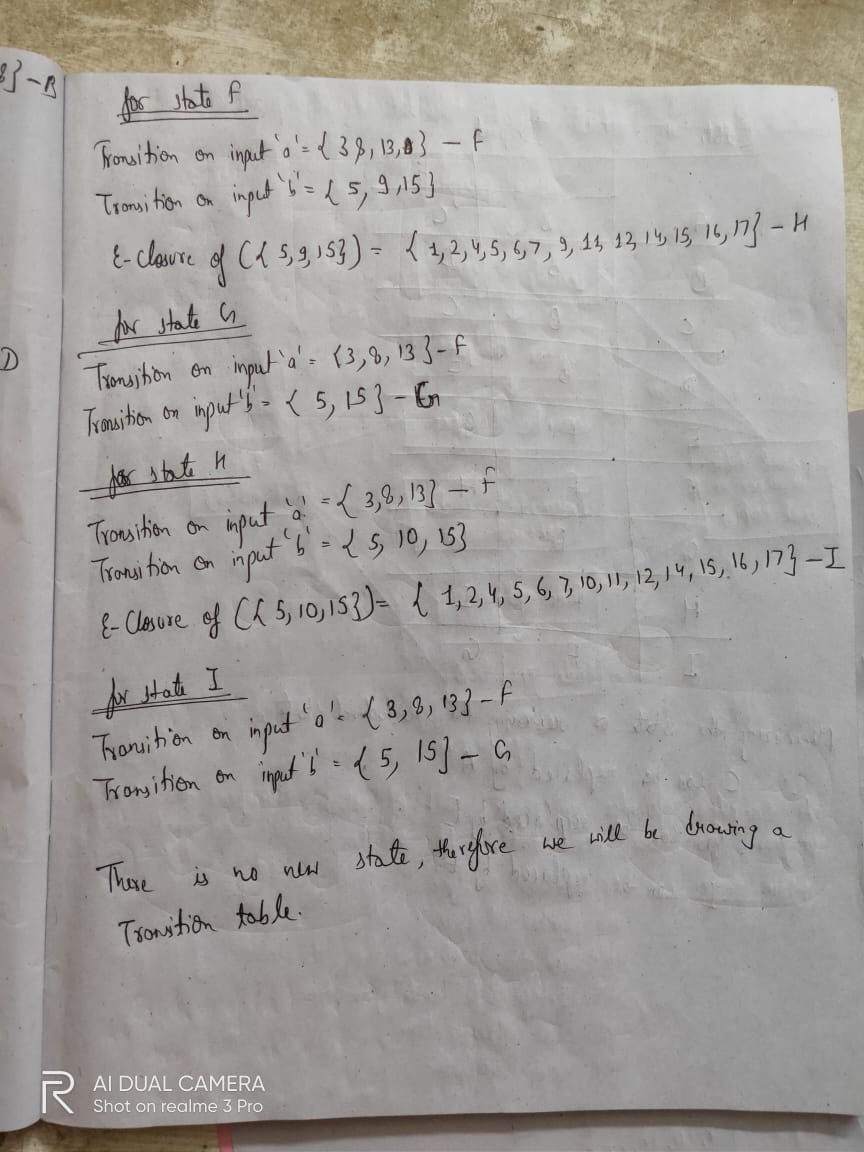 8} - B
for state F
Transition on input 'a' = { 3 8, 13, } - F
Transition on input 'b' = { 5, 9, 15}
ε-closure of ({ 5, 9, 15}) = { 1, 2, 4, 5, 6, 7, 9, 11, 12, 14, 15, 16, 17} - H
for state G
D
Transition on input 'a' = {3, 8, 13 } - F
Transition on input 'b' = { 5, 15 } - G
for state H
Transition on input 'a' = { 3, 8, 13} - F
Transition on input 'b' = { 5, 10, 15}
ε-Closure of ({ 5, 10, 15}) = { 1, 2, 4, 5, 6, 7, 10, 11, 12, 14, 15, 16, 17} - I
for state I
Transition on input 'a' = { 3, 8, 13} - F
Transition on input 'b' = { 5, 15} - G
There is no new state, therefore we will be drawing a
Transition table.
AI DUAL CAMERA
Shot on realme 3 Pro